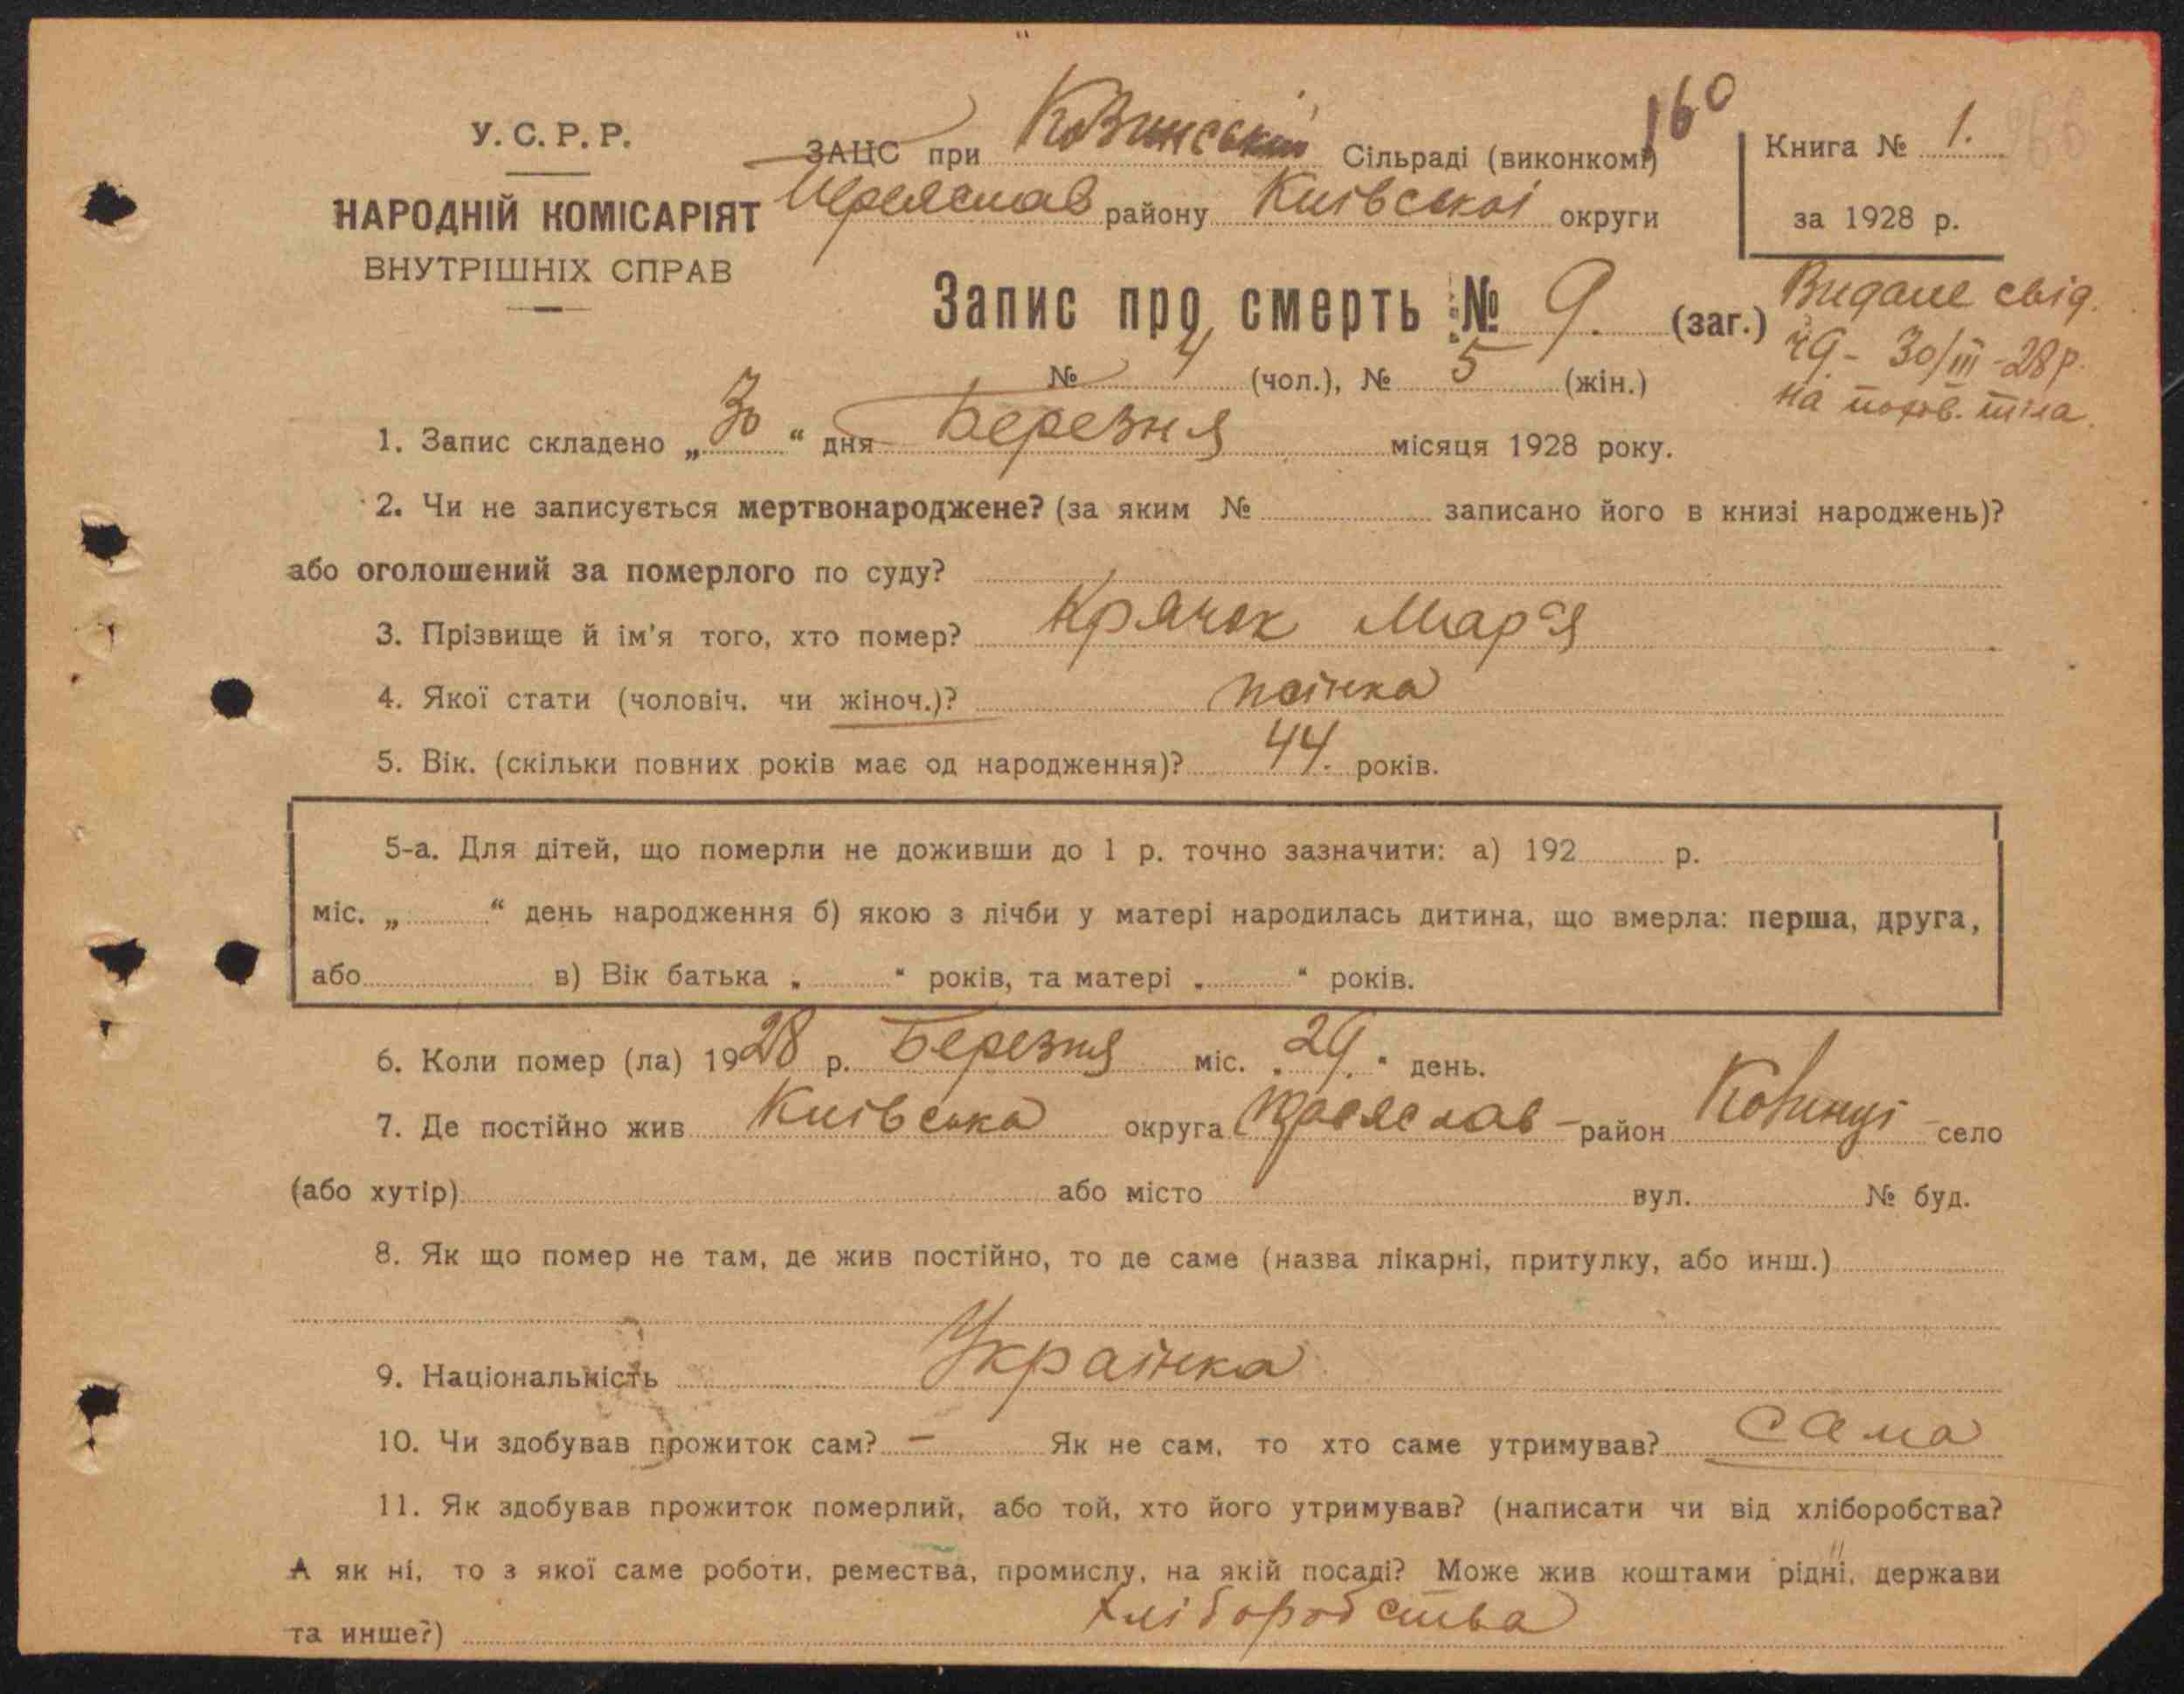 160
У. С. Р. Р.
НАРОДНІЙ КОМІСАРІЯТ
ВНУТРІШНІХ СПРАВ
ЗАЦС при Ковинській Сільраді (виконкомі)
Переяслав району Київської округи
Книга № 1.
за 1928 р.
Запис про смерть № 9. (заг.)
№ 4 (чол.), № 5 (жін.)
Видане свід.
ч9 - 30/III - 28 р.
на похов. тіла.
1. Запис складено „30“ дня Березня місяця 1928 року.
2. Чи не записується мертвонароджене? (за яким № записано його в книзі народжень)?
або оголошений за померлого по суду?
3. Прізвище й ім'я того, хто помер? Крячок Мар'я
4. Якої стати (чоловіч. чи жіноч.)? жінка
5. Вік. (скільки повних років має од народження)? 44. років.
5-а. Для дітей, що померли не доживши до 1 р. точно зазначити: а) 192 р.
міс. „ “ день народження б) якою з лічби у матері народилась дитина, що вмерла: перша, друга,
або в) Вік батька „ “ років, та матері „ “ років.
6. Коли помер (ла) 1928 р. Березня міс. „29.“ день.
7. Де постійно жив Київська округа Переяслав район Ковинці село
(або хутір) або місто вул. № буд.
8. Як що помер не там, де жив постійно, то де саме (назва лікарні, притулку, або инш.)
9. Національність Українка
10. Чи здобував прожиток сам? – Як не сам, то хто саме утримував? сама
11. Як здобував прожиток померлий, або той, хто його утримував? (написати чи від хліборобства?
А як ні, то з якої саме роботи, ремества, промислу, на якій посаді? Може жив коштами рідні, держави
та инше?) хліборобства